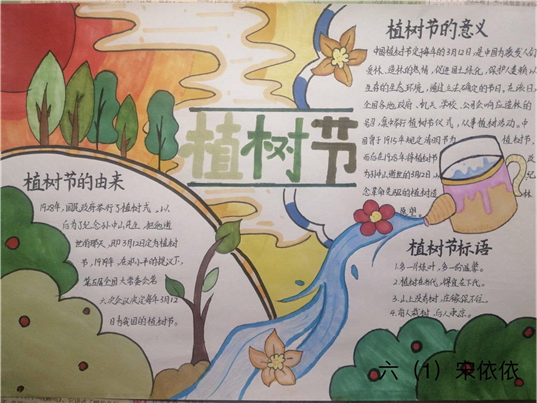 植树节
植树节的意义
中国植树节定于每年的3月12日,是中国为激发人们
爱林、造林的热情,促进国土绿化,保护人类赖以
生存的生态环境,通过立法确定的节日,在该日,
全国各地政府、机关、学校、公司会响应造林的
号召,集中举行植树节仪式,从事植树活动。中
国曾于1915年规定清明节为植树节,
而后在1928年将植树节
为孙中山逝世的3月12日,以纪
念革命先驱的植树造林
愿望。
植树节的由来
1928年,国民政府举行了植树式,以
后为了纪念孙中山先生,把他逝
世的那天,即3月12日定为植树
节,1979年,在邓小平的提议下,
第五届全国人大常委会第
六次会议决定每年3月12
日为我国的植树节。
植树节标语
1.多一片绿叶,多一份温馨。
2.植树在当代,得益在下代。
3.山上没有树,庄稼保不住。
4.前人栽树,后人乘凉。
六(1)宋依依